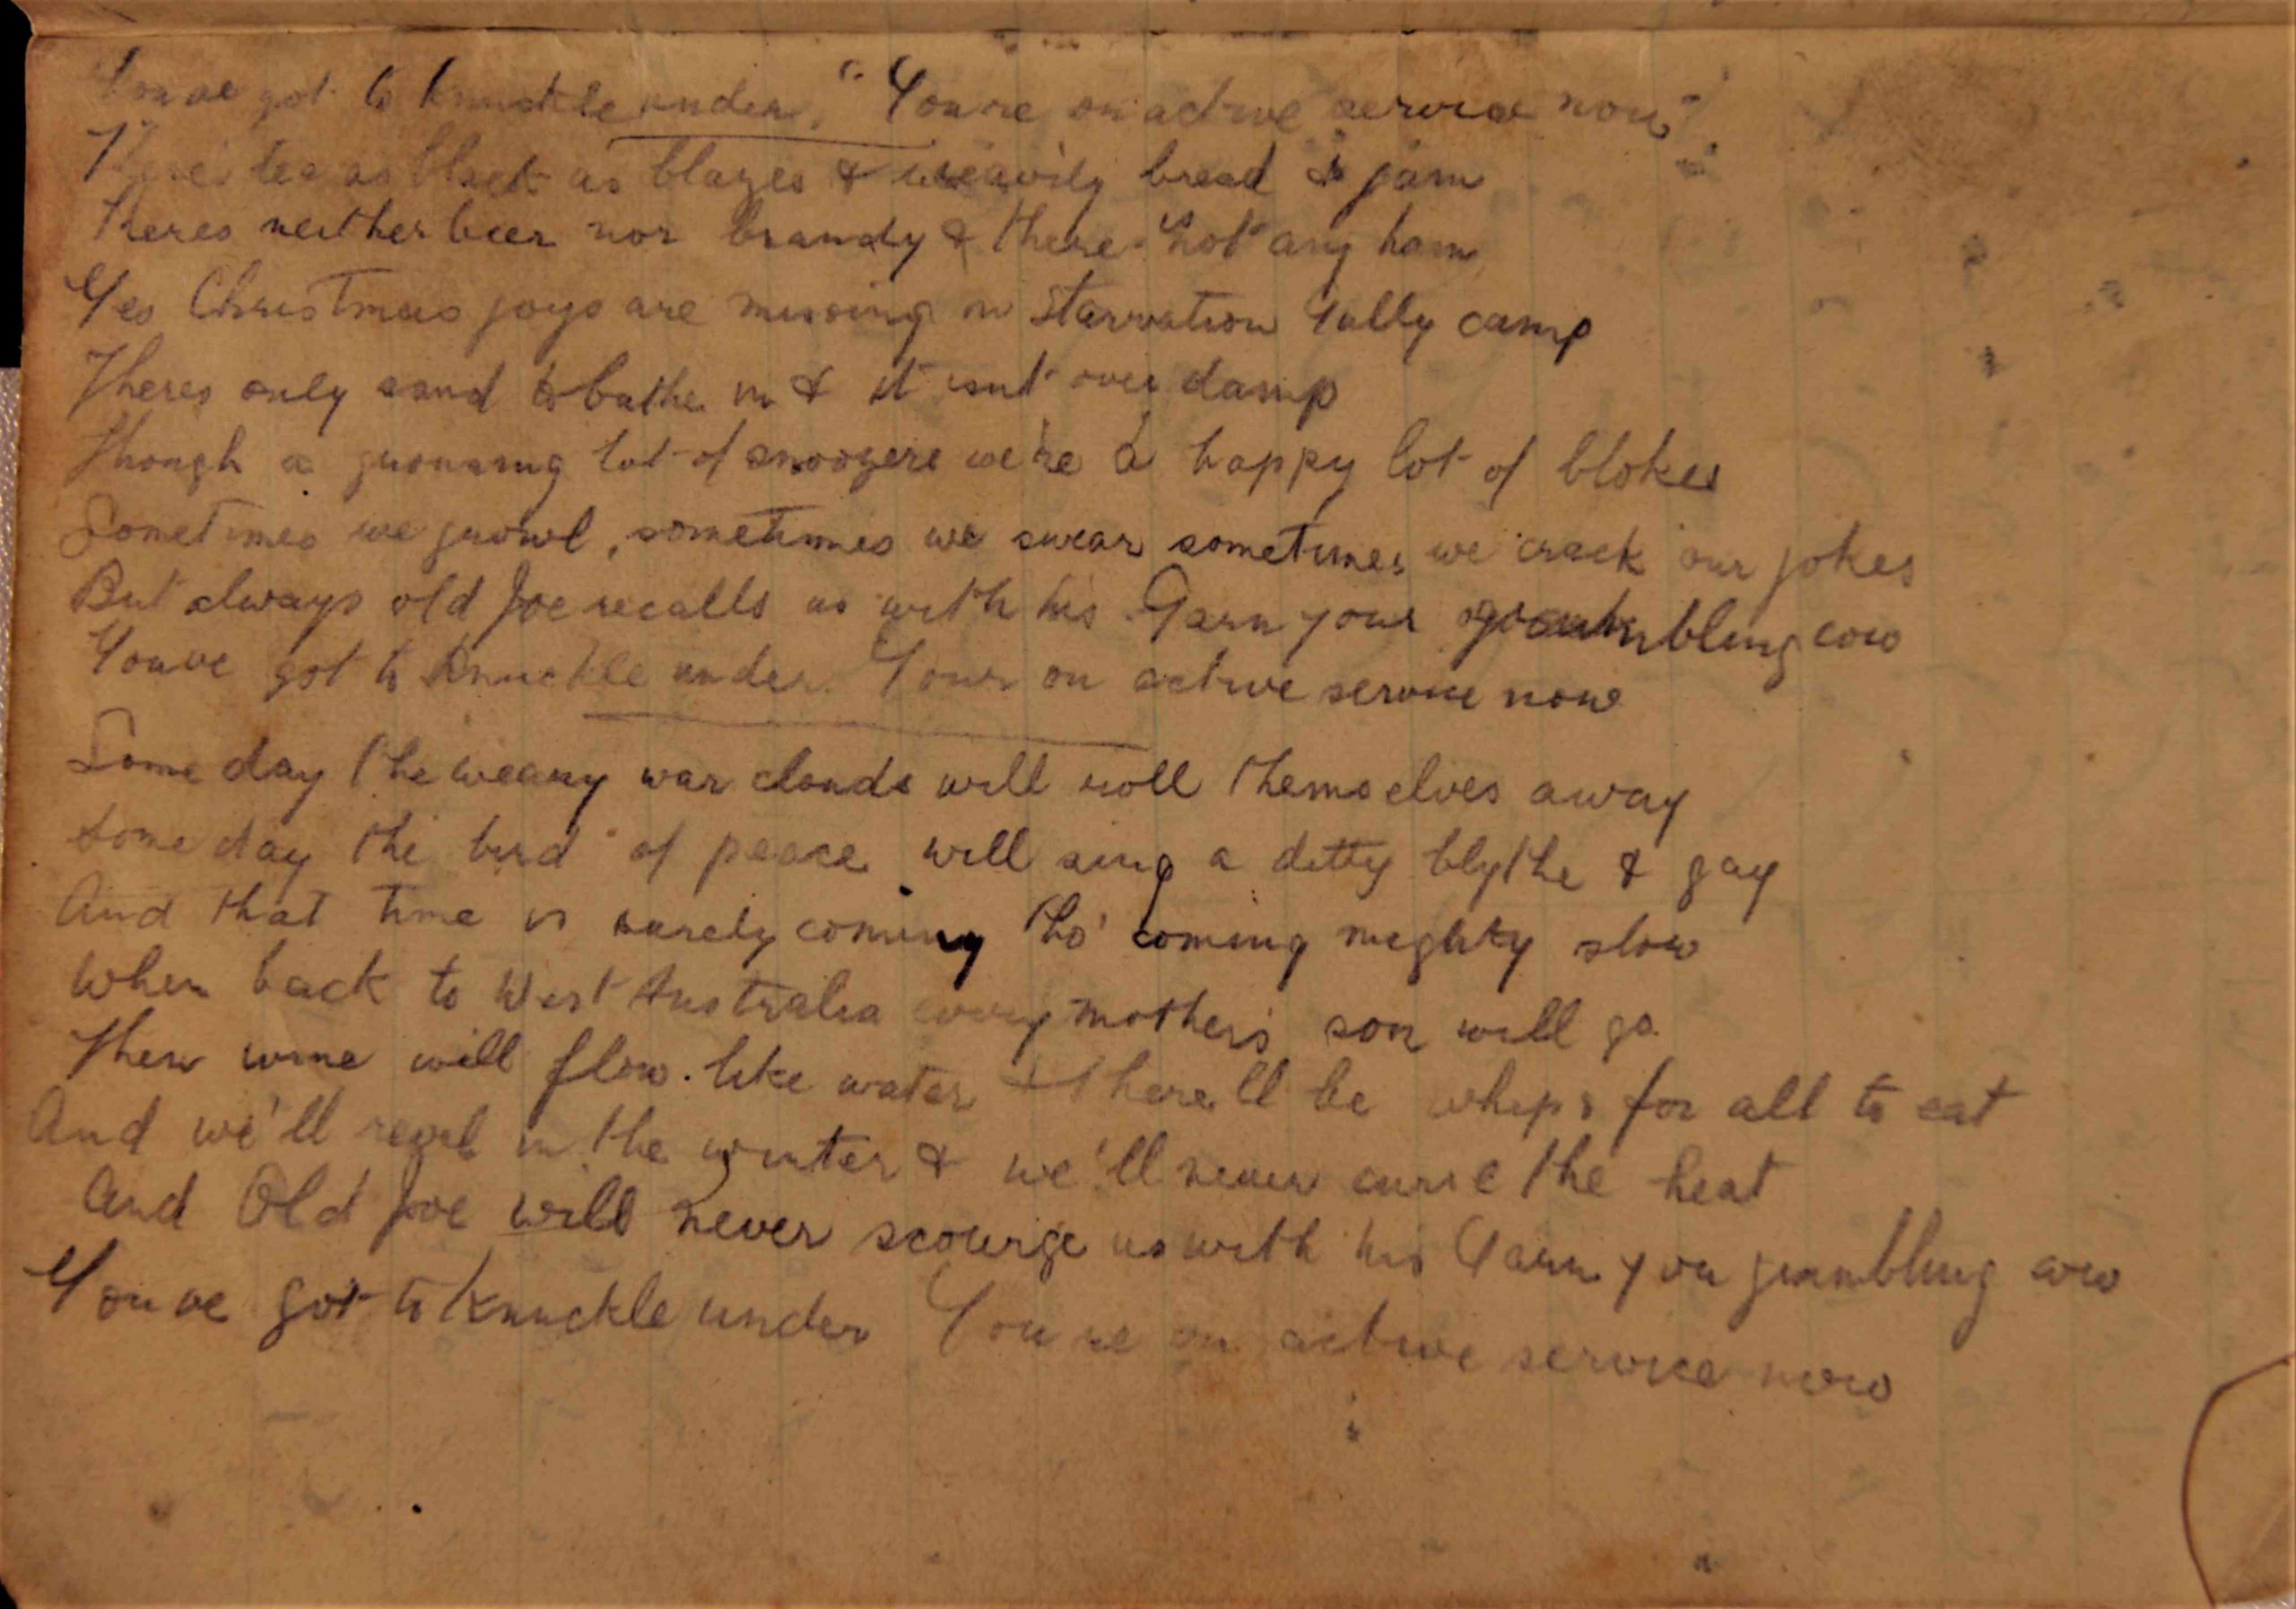 Youve got to knuckle under, "Youre on active service now"
Theres tea as black as blazes & weavily bread & jam
Theres neither beer nor brandy & theres not any ham
Yes Christmas joys are missing in Starvation Gully camp
Theres only sand to bathe in & it isnt over damp
Though a grousing lot of snoozers we're a happy lot of blokes
Sometimes we growl, sometimes we swear sometimes we crack our jokes
But always old Joe recalls us with his Garn your grumbling cow
Youve got to knuckle under. Your on active service now
Some day the weary war clouds will roll themselves away
Some day the bird of peace will sing a ditty blythe & gay
And that time is surely coming tho' coming mighty slow
When back to West Australia every mother's son will go
Then wine will flow. like water & therell be whips for all to eat
And we'll revel in the winter & we'll never curse the heat
And Old Joe will never scourge us with his Garn you grumbling cow
Youve got to knuckle under Youre on active service now